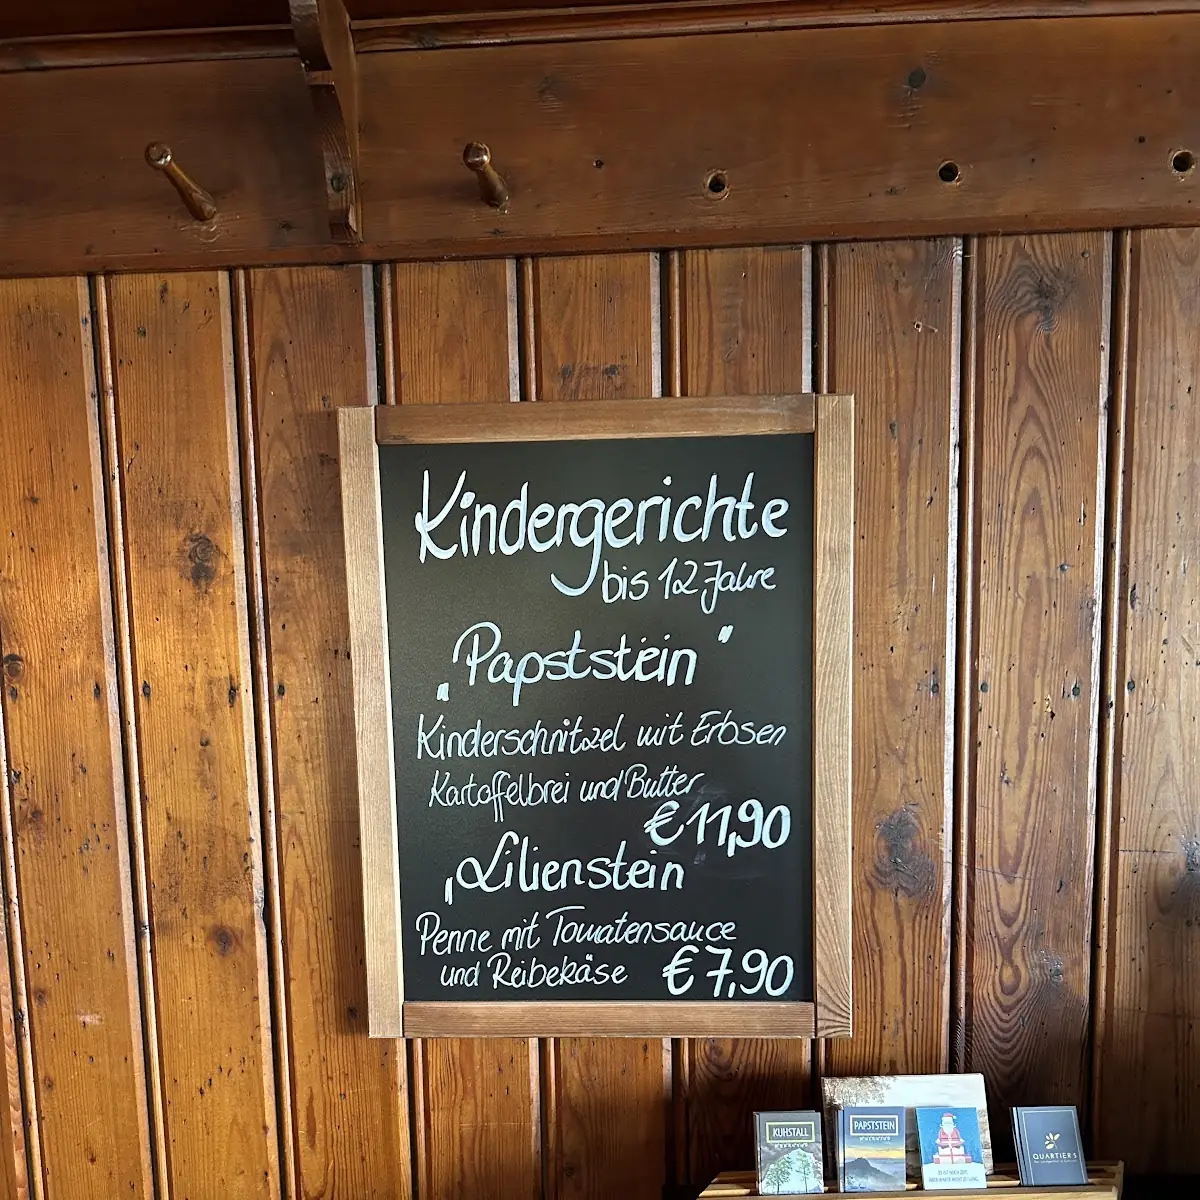 Kindergerichte
bis 12 Jahre
„Papststein"
Kinderschnitzel mit Erbsen
Kartoffelbrei und Butter
€ 11,90
„Lilienstein
Penne mit Tomatensauce
und Reibekäse € 7,90
KUHSTALL
PAPSTSTEIN
QUARTIERS